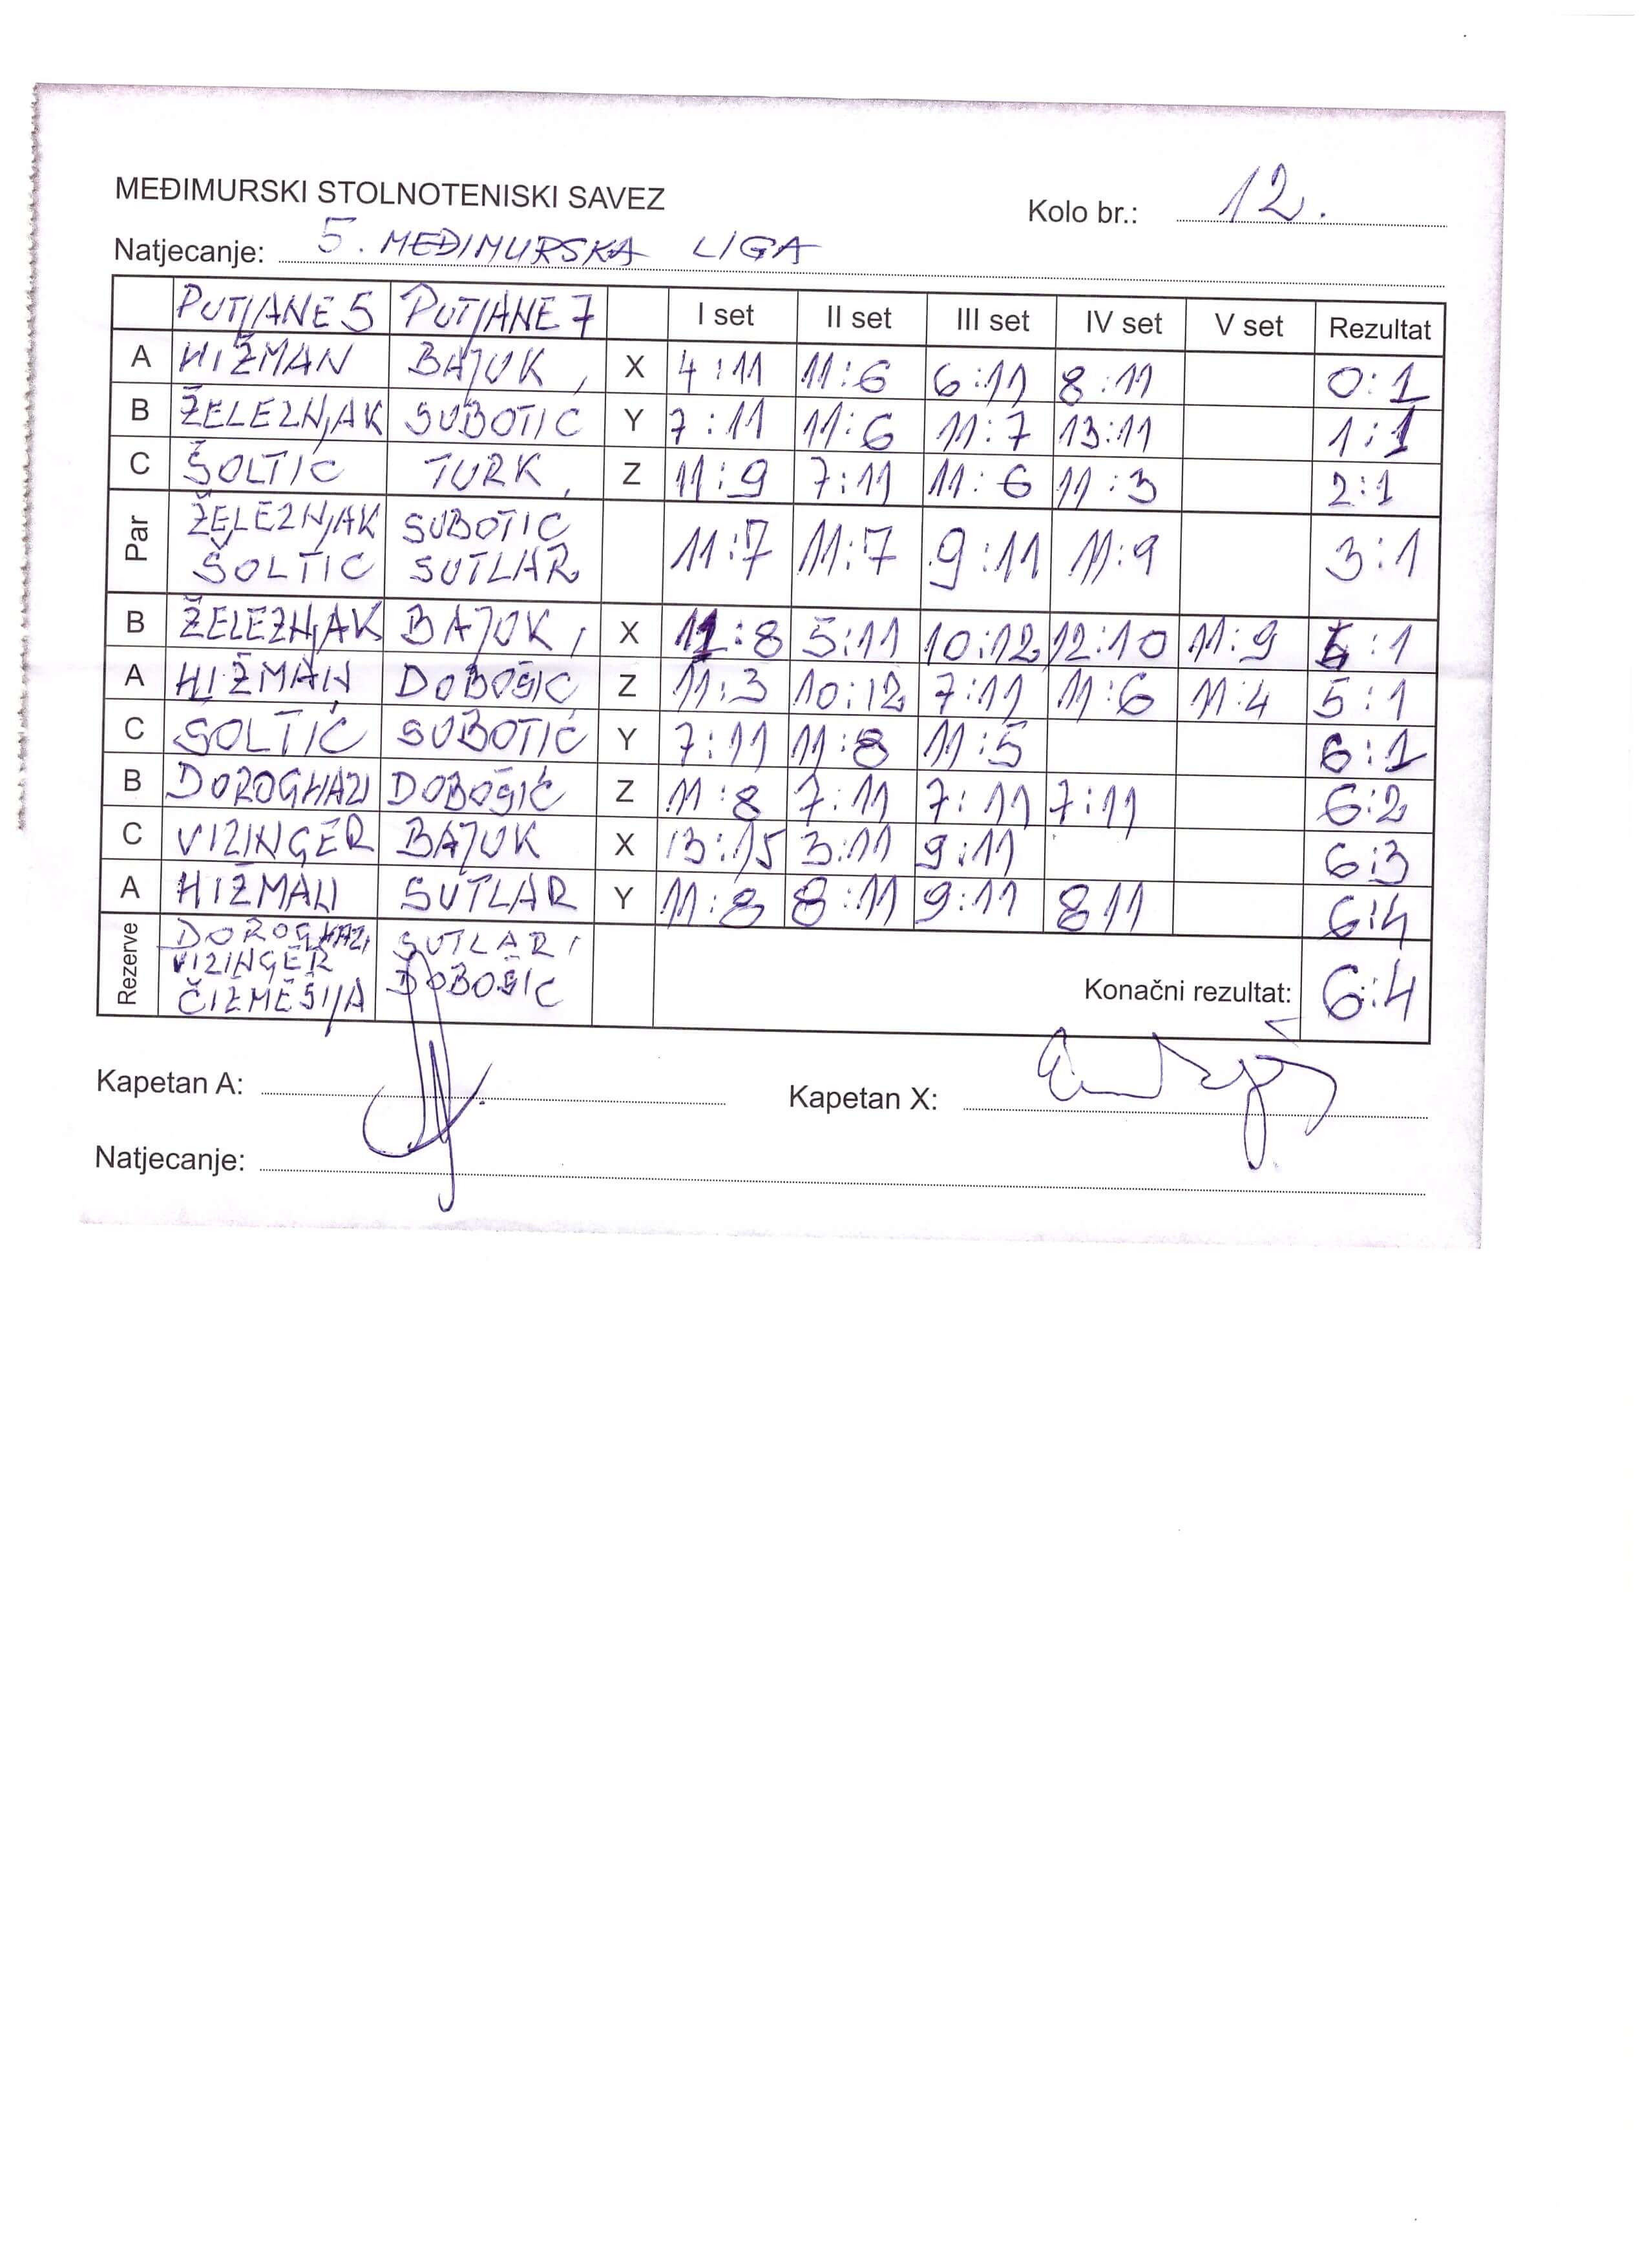 MEĐIMURSKI STOLNOTENISKI SAVEZ
Kolo br.: 12.
Natjecanje: 5. MEĐIMURSKA LIGA
PUTJANE 5 PUTJANE 7 I set II set III set IV set V set Rezultat
A HIŽMAN BAJUK X 4:11 11:6 6:11 8:11 0:1
B ŽELEZNJAK SUBOTIĆ Y 7:11 11:6 11:7 13:11 1:1
C ŠOLTIC TURK Z 11:9 7:11 11:6 11:3 2:1
Par ŽELEZNJAK SUBOTIĆ 11:7 11:7 9:11 11:9 3:1
ŠOLTIC SUTLAR
B ŽELEZNJAK BAJUK X 11:8 5:11 10:12 12:10 11:9 :1
A HIŽMAN DOBOŠIĆ Z 11:3 10:12 7:11 11:6 11:4 5:1
C ŠOLTIĆ SUBOTIĆ Y 7:11 11:8 11:5 6:1
B DOROGHAZI DOBOŠIĆ Z 11:8 7:11 7:11 7:11 6:2
C VIZINGER BAJUK X 13:15 3:11 9:11 6:3
A HIŽMAN SUTLAR Y 11:8 8:11 9:11 8 11 6:4
Rezerve DOROGHAZI SUTLAR
VIZINGER DOBOŠIĆ
ČIZMEŠIJA
Konačni rezultat: 6:4
Kapetan A:
Kapetan X:
Natjecanje: